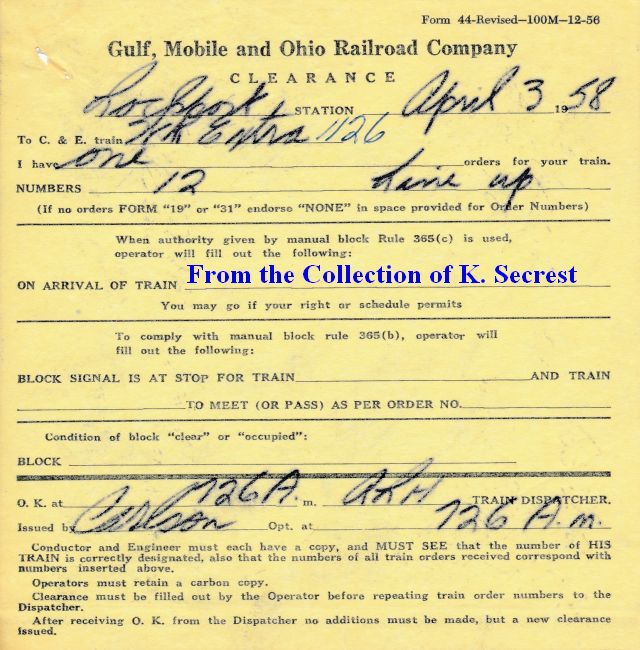 Form 44-Revised—100M—12-56
Gulf, Mobile and Ohio Railroad Company
CLEARANCE
Lockport STATION April 3 1958
To C. & E. train Wk Extra 1126
I have one orders for your train.
NUMBERS 12 Line up
(If no orders FORM "19" or "31" endorse "NONE" in space provided for Order Numbers)
When authority given by manual block Rule 365(c) is used,
operator will fill out the following:
ON ARRIVAL OF TRAIN From the Collection of K. Secrest
You may go if your right or schedule permits
To comply with manual block rule 365(b), operator will
fill out the following:
BLOCK SIGNAL IS AT STOP FOR TRAIN AND TRAIN
TO MEET (OR PASS) AS PER ORDER NO.
Condition of block "clear" or "occupied":
BLOCK
O. K. at 726 A. m. ALH TRAIN DISPATCHER.
Issued by Carlson Opt. at 726 A.m.
Conductor and Engineer must each have a copy, and MUST SEE that the number of HIS
TRAIN is correctly designated, also that the numbers of all train orders received correspond with
numbers inserted above.
Operators must retain a carbon copy.
Clearance must be filled out by the Operator before repeating train order numbers to the
Dispatcher.
After receiving O. K. from the Dispatcher no additions must be made, but a new clearance
issued.